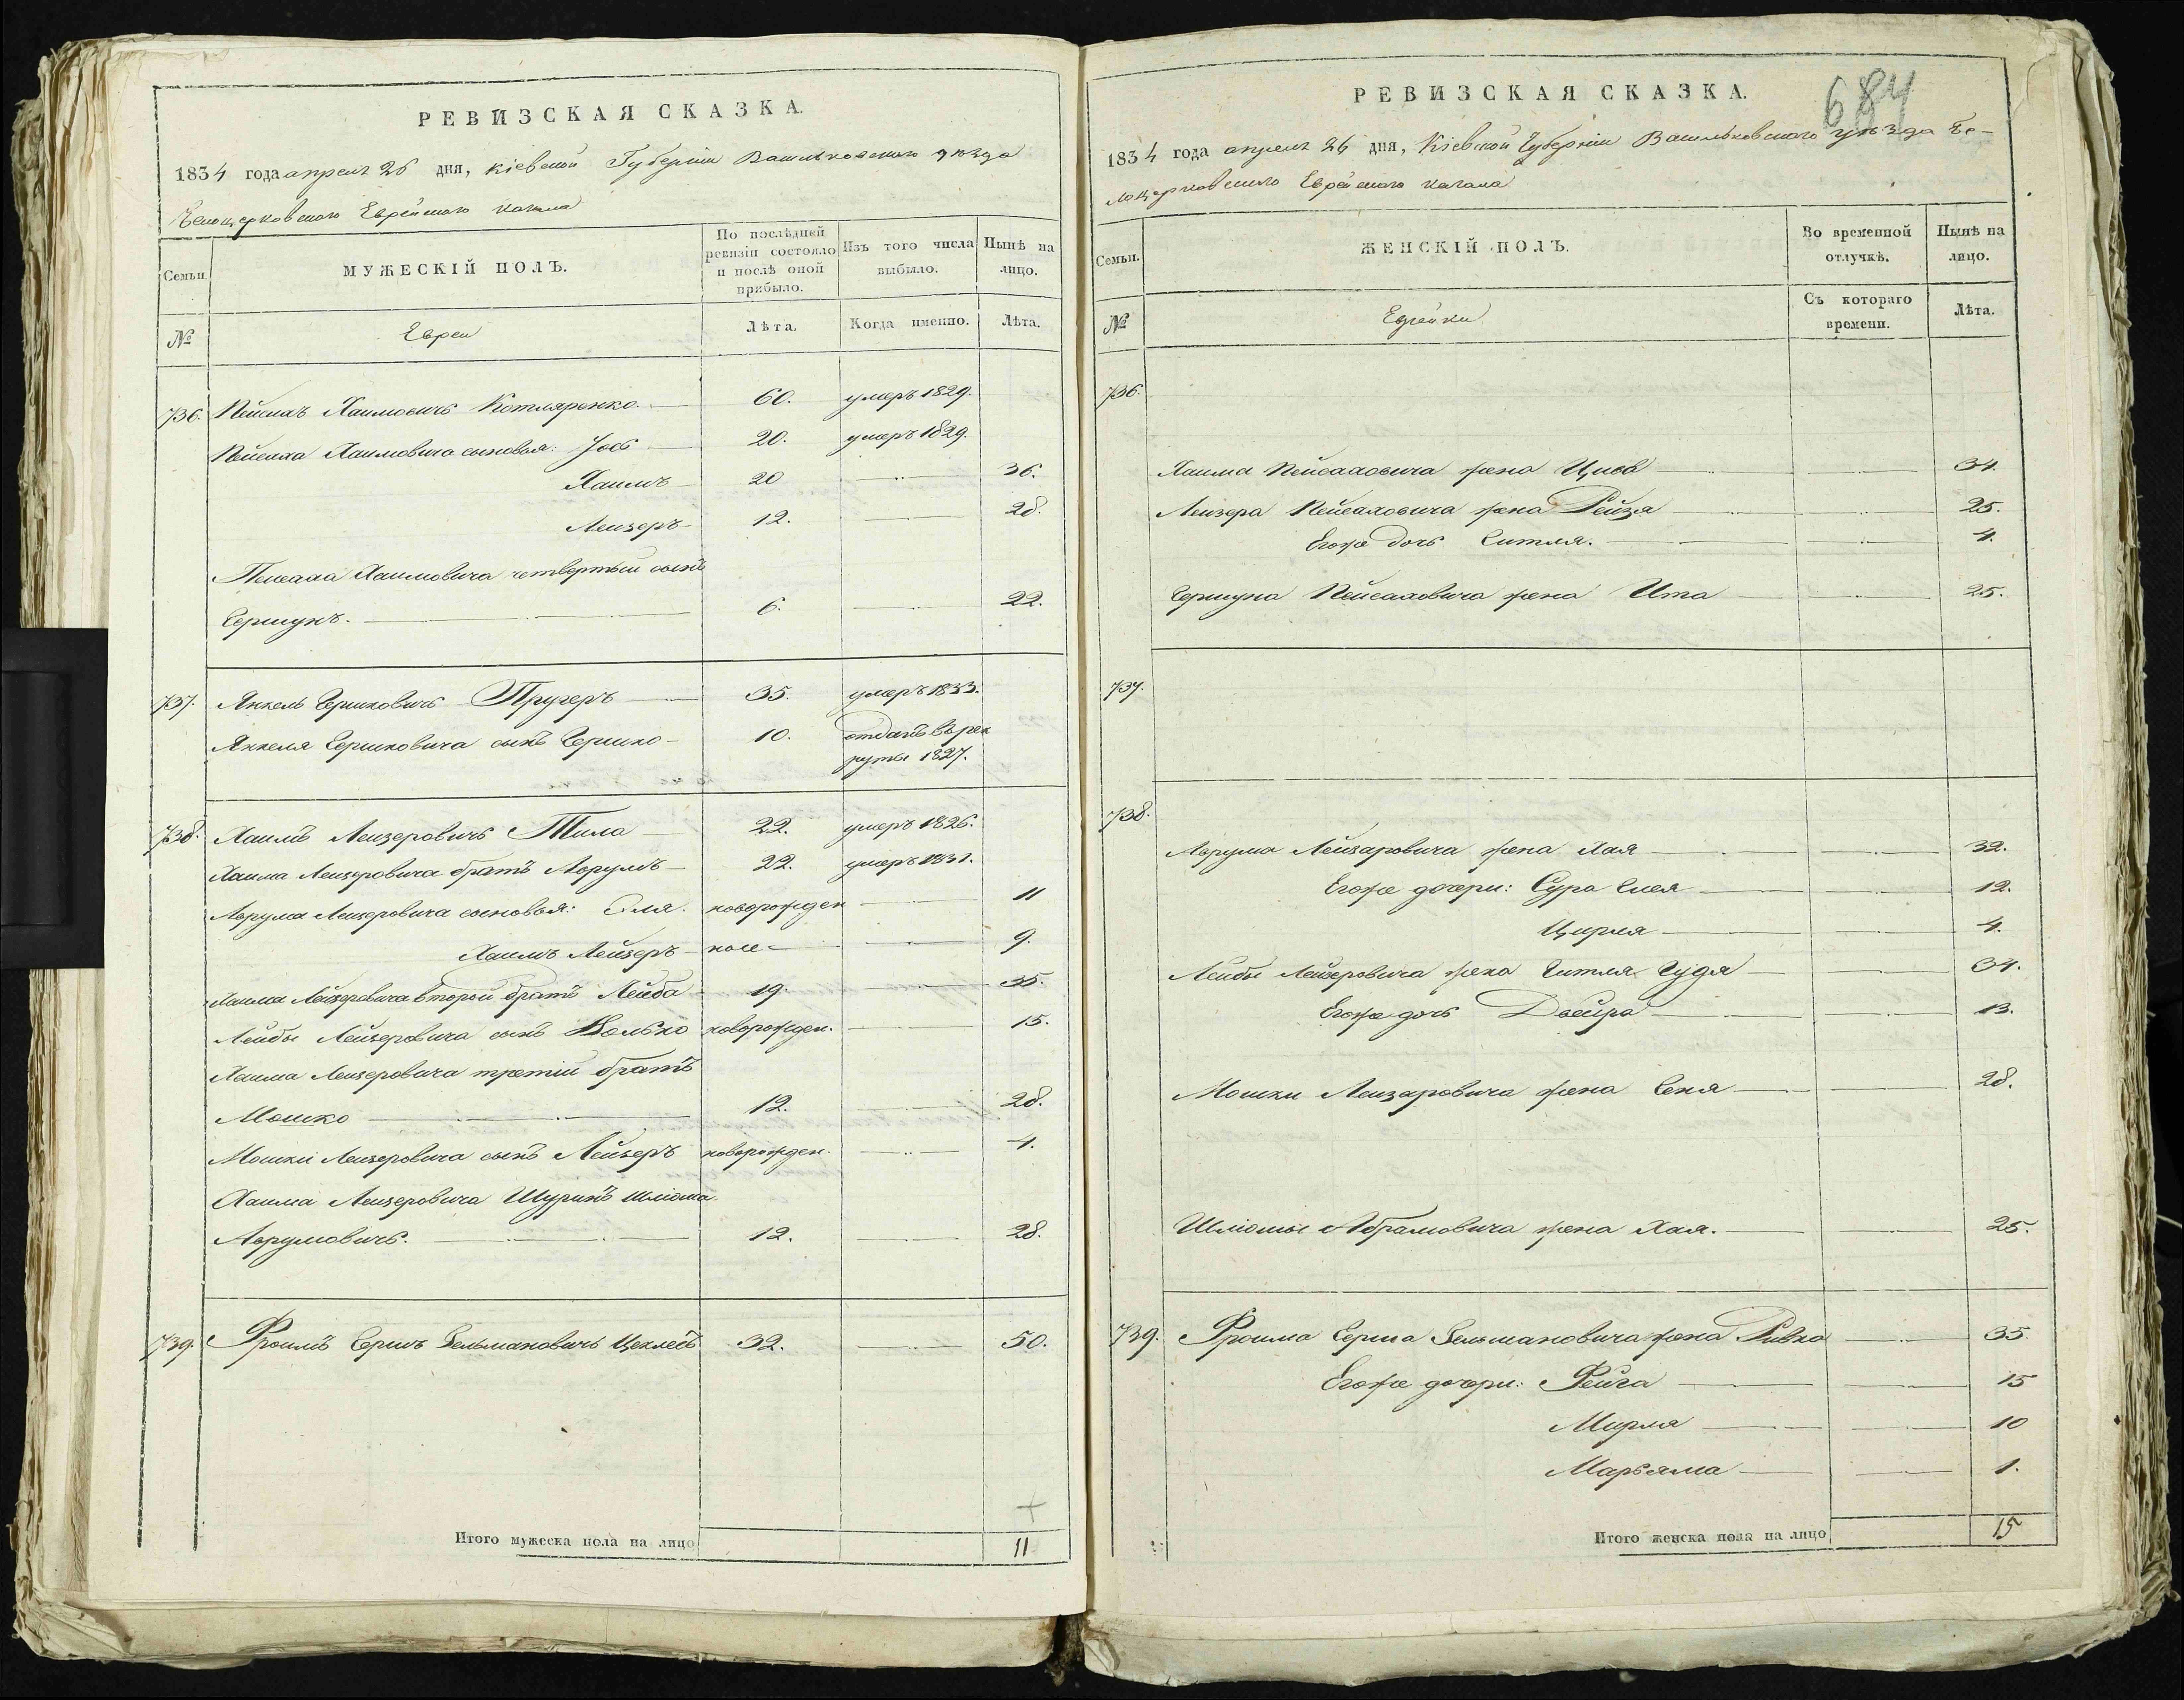 РЕВИЗСКАЯ СКАЗКА.
1834 года апреля 26 дня, Кіевской Губерніи Васильковскаго уѣзда
Белоцерковскаго Еврейскаго Кагала
Семьи.
МУЖЕСКІЙ ПОЛЪ.
По послѣдней ревизіи состояло и послѣ оной прибыло.
Изъ того числа выбыло.
Нынѣ на лицо.
№
Евреи
Лѣта.
Когда именно.
Лѣта.
736. Пейсахъ Хаимовичъ Котляренко. 60. умеръ 1829.
Пейсаха Хаимовича сыновья: Іосъ 20. умеръ 1829.
Хаимъ 20 36.
Лейзеръ 12. 28.
Пейсаха Хаимовича четвертый сынъ
Гершунъ. 6. 22.
737. Янкель Гершковичъ Пругеръ 35. умеръ 1833.
Янкеля Гершковича сынъ Гершко 10. отданъ въ рек
руты 1827.
738. Хаимъ Лейзеровичъ Тила 22. умеръ 1826.
Хаима Лейзеровича братъ Аврумъ 22. умеръ 1831.
Аврума Лейзеровича сыновья: Эля. новорожден 11
Хаимъ Лейзеръ ные 9.
Хаима Лейзеровича второй братъ Лейба 19. 35.
Лейбы Лейзеровича сынъ Волько новорожден. 15.
Хаима Лейзеровича третій братъ
Мошко 12. 28.
Мошки Лейзеровича сынъ Лейзеръ новорожден. 4.
Хаима Лейзеровича Шуринъ Шліома
Аврумовичъ. 12. 28.
739. Фроимъ Гершъ Зельмановичъ 32. 50.
Итого мужеска пола на лицо 11
684
РЕВИЗСКАЯ СКАЗКА.
1834 года апреля 26 дня, Кіевской Губерніи Васильковскаго уѣзда Бе-
лоцерковскаго Еврейскаго Кагала
Семьи.
ЖЕНСКІЙ ПОЛЪ.
Во временной отлучкѣ.
Нынѣ на лицо.
№
Еврейки
Съ котораго времени.
Лѣта.
736.
Хаима Пейсаховича жена Цива 34.
Лейзера Пейсаховича жена Рейза 25.
Егоже дочь Гитля. 4.
Гершуна Пейсаховича жена Ита 25.
737.
738.
Аврума Лейзаровича жена Хая 32.
Егоже дочери: Сура 12.
Цирля 4.
Лейбы Лейзеровича жена Гитля Гудя 34.
Егоже дочь Двейра 13.
Мошки Лейзаровича жена Геня 28.
Шліомы Абрамовича жена Хая. 25.
739. Фроима Герша Зельмановича жена Ривка 35.
Егоже дочери: Фейга 15
Мирля 10
Марьяма 1.
Итого женска пола на лицо 15